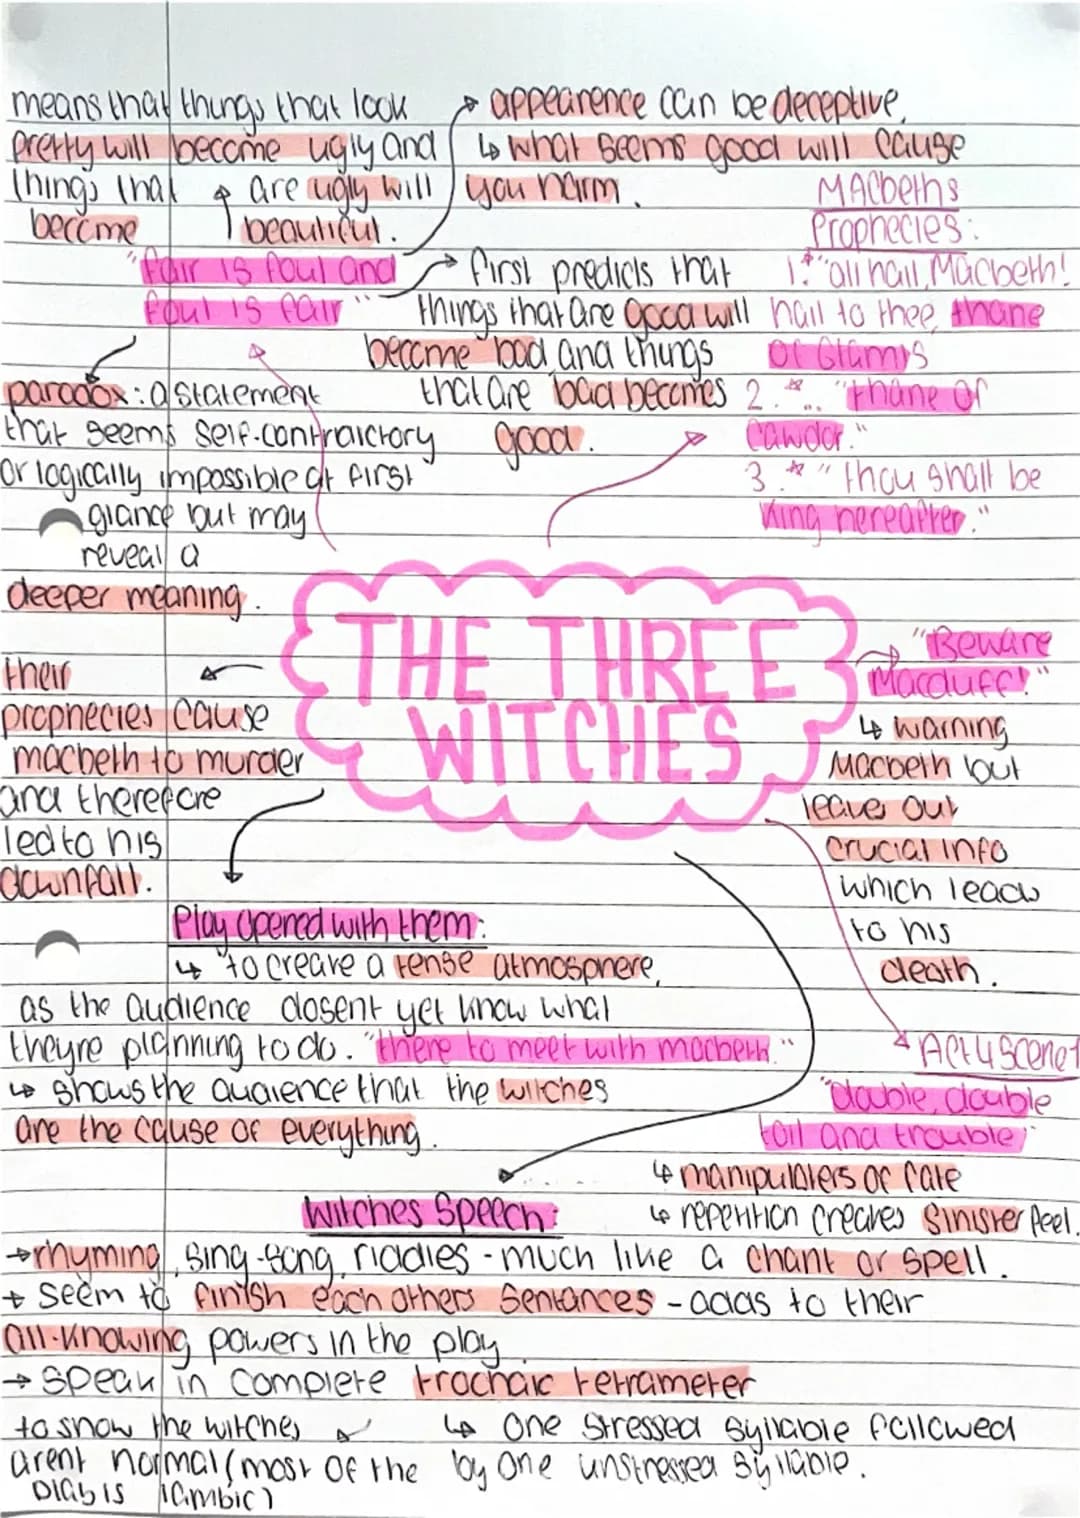 means that things that look
pretty will become ugly and
things that are ugly will
become beautiful.
appearence can be deceptive.
↳ what seems good will cause
you harm.
"fair is foul and
foul is fair"
first predicts that
things that are good will
become bad and things
that are bad becomes
good.
MACbeths
Prophecies:
1. * "all hail, Macbeth!
hail to thee, thane
of Glamis
2. * "... "thane of
Cawdor."
3. * " thou shalt be
King hereafter."
paradox: a statement
that seems self-contraictory
or logically impossible at first
glance but may
reveal a
deeper meaning.
THE THREE
WITCHES
their
prophecies cause
macbeth to murder
and therefore
led to his
downfall.
"Beware
Macduff!"
↳ warning
Macbeth but
leaves out
crucial info
which leads
to his
death.
Play opened with them:
↳ to create a tense atmosphere,
as the audience dosent yet know what
theyre planning to do. "there to meet with macbeth."
↳ shows the audience that the witches
are the cause of everything.
Act 4 Scene 1
"double, double
toil and trouble;"
↳ manipulaters of fate
↳ repetition creates sinister feel.
Witches Speech:
→ rhyming, sing-song, riddles - much like a chant or spell.
→ seem to finish each others sentances - adds to their
all-knowing powers in the play.
→ speak in complete trochaic tetrameter
to show the witches
arent normal (most of the
play is iambic)
↳ One stressed syllable followed
by one unstressed syllable.